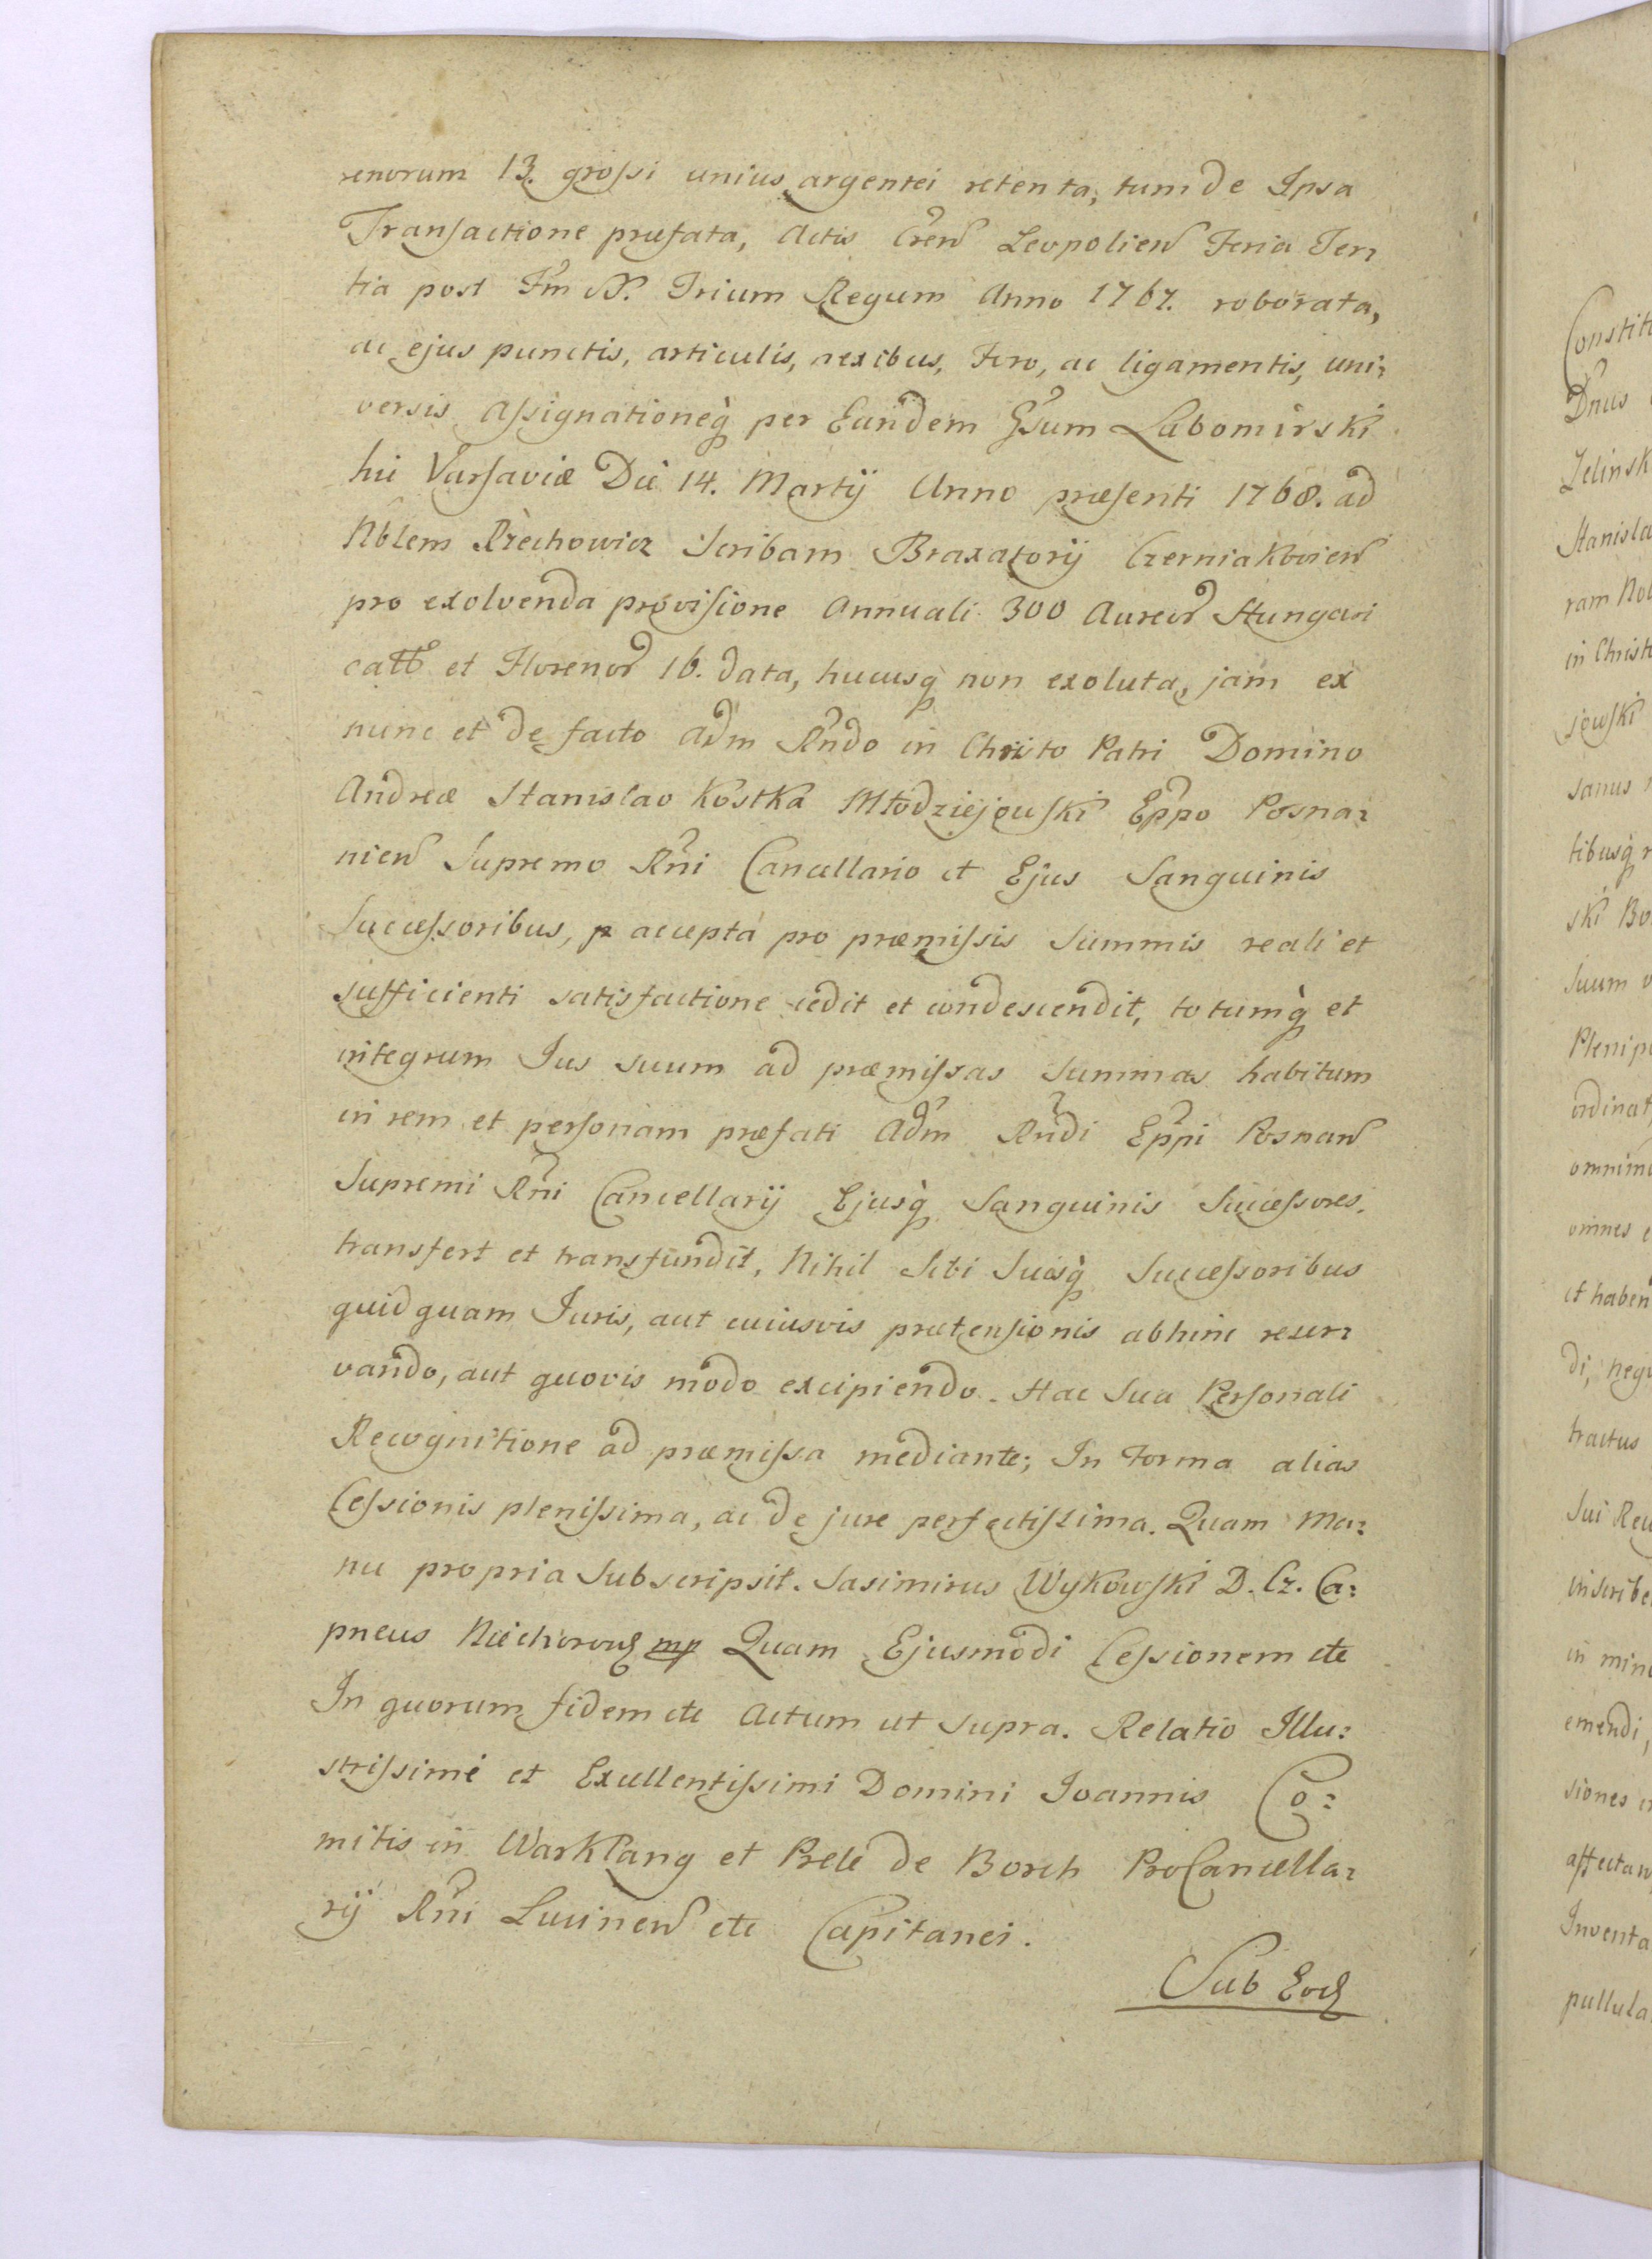 renorum 13. grossi unius argentei retenta, tum de Ipsa
Transactione præfata, Actis Cren Leopolien Feria Ter=
tia post Fm SS. Trium Regum Anno 1767. roborata,
ac ejus punctis, articulis, nexibus, Fero, ac ligamentis, uni=
versis Assignationeq per Eundem Gsum Lubomirski
hic Varsaviæ Die 14. Martij Anno præsenti 1768. ad
Nblem Rzechowicz Scribam Braxatorij Czerniakovien
pro exolvenda provisione Annuali 300 Aureor Hungari
calb et Florenor 16. data, hucusq non exoluta, jam ex
nunc et de facto Adm Rndo in Christo Patri Domino
Andreæ Stanislao Kostka Młodziejowski Eppo Posna=
nien Supremo Rni Cancellario et Ejus Sanguinis
Successoribus, accepta pro præmissis Summis reali et
sufficienti satisfactione cedit et condescendit, totumq et
integrum Jus suum ad præmissas Summas habitum
in rem et personam præfati Adm Rndi Eppi Posnan
Supremi Rni Cancellarij Ejusq Sanguinis Successores,
transfert et transfundit, Nihil Sibi Suisq Successoribus
quidquam Juris, aut cuiusvis prætensionis abhinc reser=
vando, aut quovis modo excipiendo. Hac Sua Personali
Recognitione ad præmissa mediante; In Forma alias
Cessionis plenissima, ac de jure perfectissima. Quam Ma=
nu propria Subscripsit. Sasimirus Wykowski D. Cz. Ca=
pneus mp Quam Ejusmodi Cessionem etc
In quorum fidem etc Actum ut supra. Relatio Illu=
strissimi et Excellentissimi Domini Joannis Co=
mitis in Warkląng et Prele de Borch ProCancella=
rij Rni Lucinen etc Capitanei.
Sub Eod